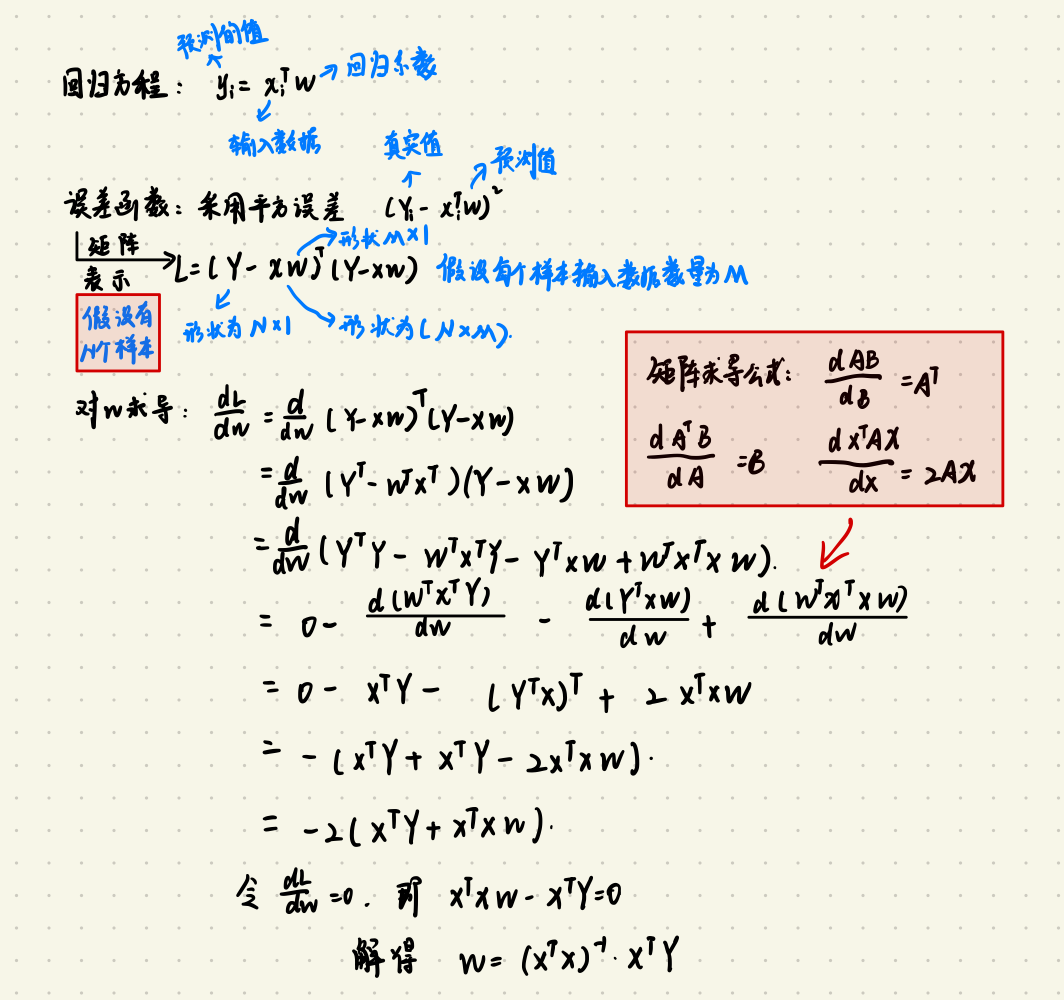 预测的值
回归方程： yᵢ = xᵢᵀw → 回归系数
输入数据
真实值 预测值
误差函数：采用平方误差 (Yᵢ - xᵢᵀw)²
矩阵 形状M×1
表示 L = (Y - xw)ᵀ(Y - xw) 假设每个样本输入数据数量为M
假设有 形状为N×1 形状为(N×M).
N个样本
矩阵求导公式： dAB/dB = Aᵀ
dAᵀB/dA = B dxᵀAx/dx = 2Ax
对w求导： dL/dw = d/dw (Y - xw)ᵀ(Y - xw)
= d/dw (Yᵀ - wᵀxᵀ)(Y - xw)
= d/dw (YᵀY - wᵀxᵀY - Yᵀxw + wᵀxᵀxw).
= 0 - d(wᵀxᵀY)/dw - d(Yᵀxw)/dw + d(wᵀxᵀxw)/dw
= 0 - xᵀY - (Yᵀx)ᵀ + 2xᵀxw
= -(xᵀY + xᵀY - 2xᵀxw).
= -2(xᵀY + xᵀxw).
令 dL/dw = 0. 即 xᵀxw - xᵀY = 0
解得 w = (xᵀx)⁻¹·xᵀY